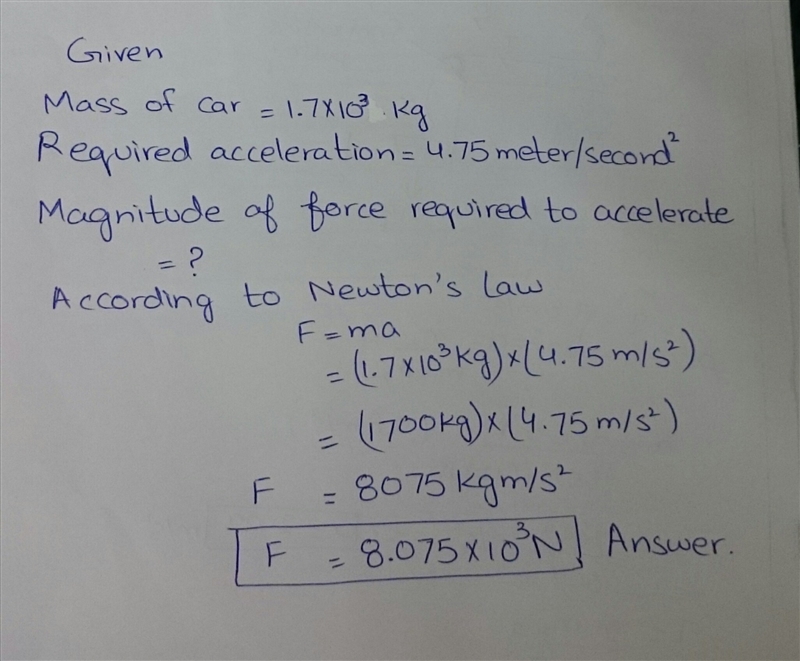 Given
Mass of car = 1.7×10³ kg
Required acceleration = 4.75 meter/second²
Magnitude of force required to accelerate
= ?
According to Newton's Law
F = ma
= (1.7×10³kg)×(4.75 m/s²)
= (1700kg)×(4.75 m/s²)
F = 8075 kgm/s²
F = 8.075×10³N Answer.